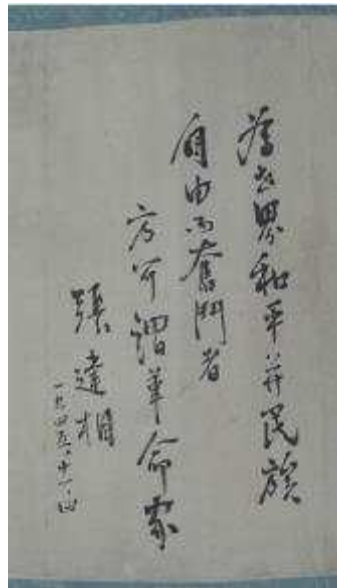 為世界和平并民族
自由而奮鬥者
方可謂革命家
張達相
一九四五、十一、四